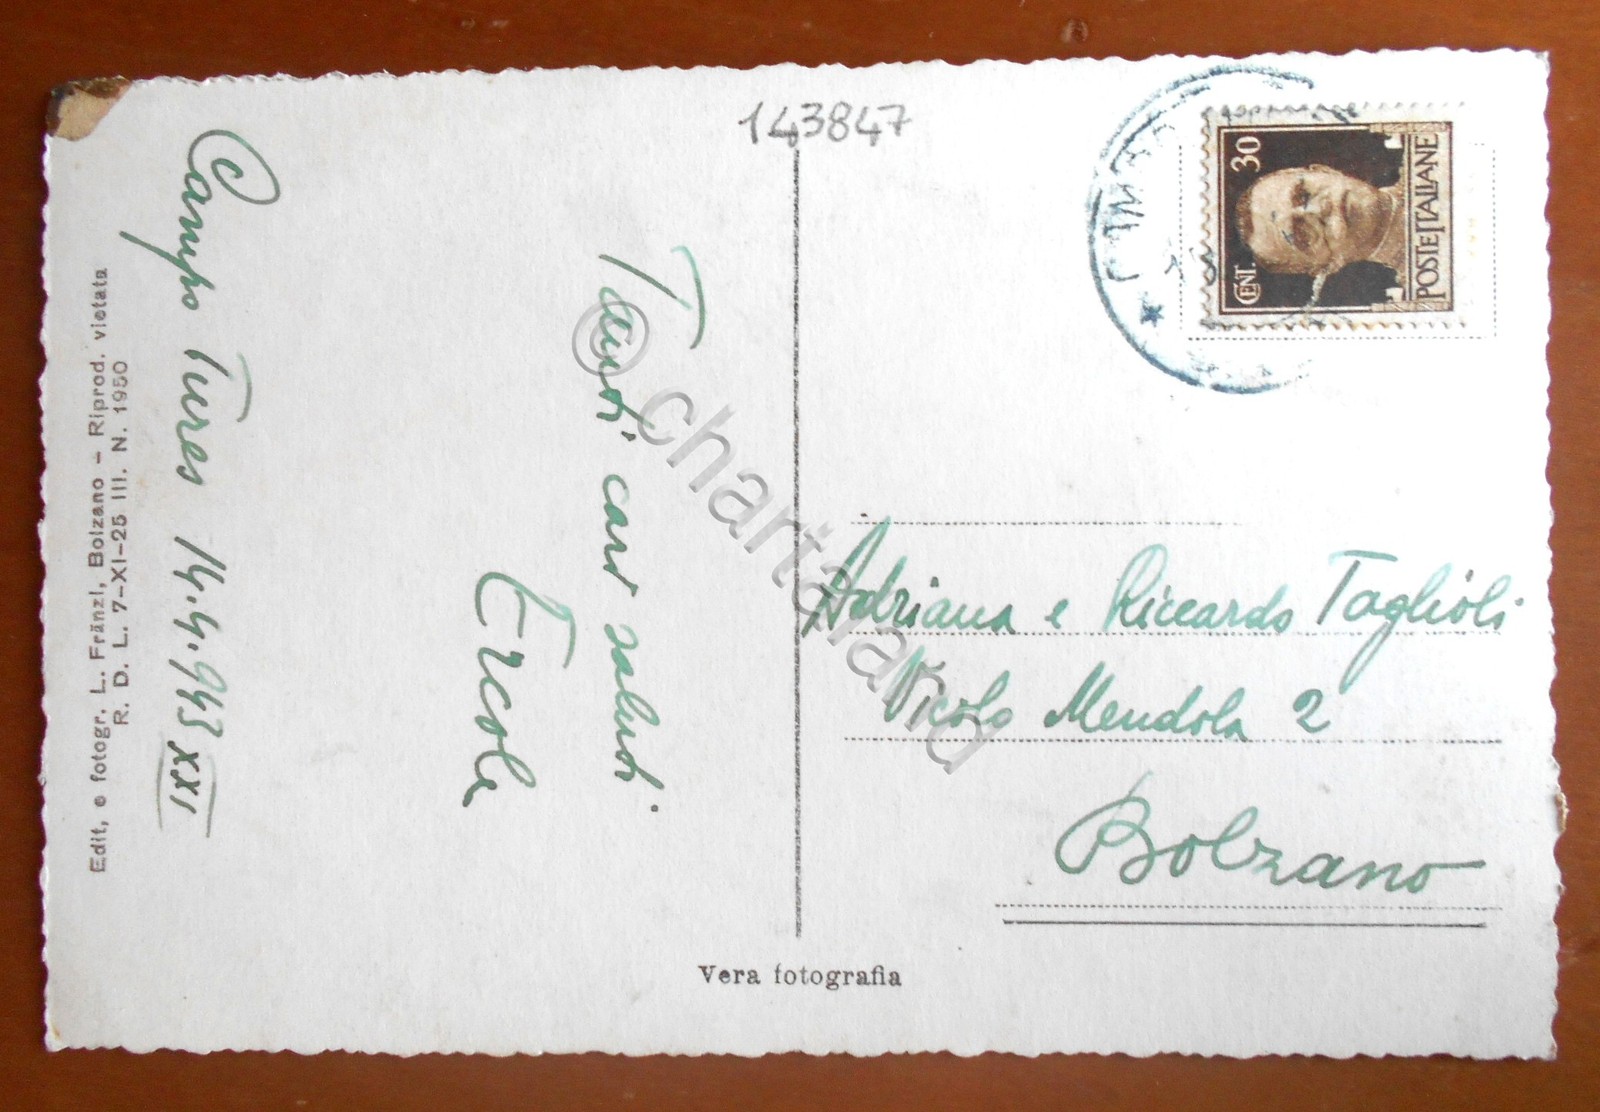 143847
CENT. 30
POSTE ITALIANE
Campo Tures 14.4.943 XXI
Tanti cari saluti
Ercole
Adriana e Riccardo Taglioli
Vicolo Mendola 2
Bolzano
Vera fotografia
Edit, e fotogr. L. Fränzl, Bolzano - Riprod. vietata
R. D. L. 7-XI-25 III. N. 1950
© chartaland